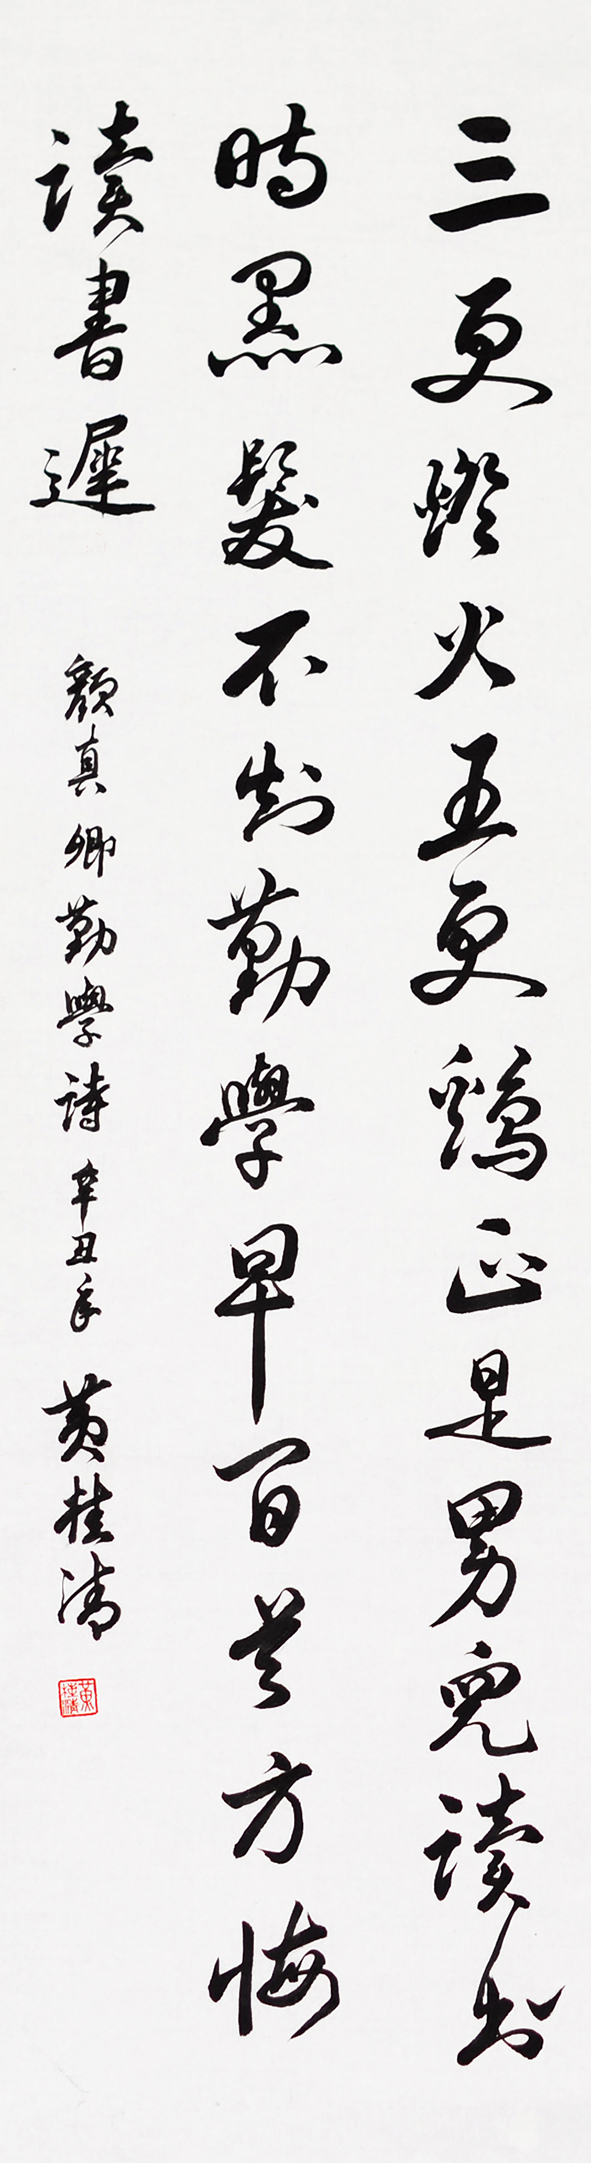 三更燈火五更鷄正是男兒讀書
時黑髮不知勤學早百首方悔
讀書遲
顏真卿勤學詩 辛丑年 黄桂清